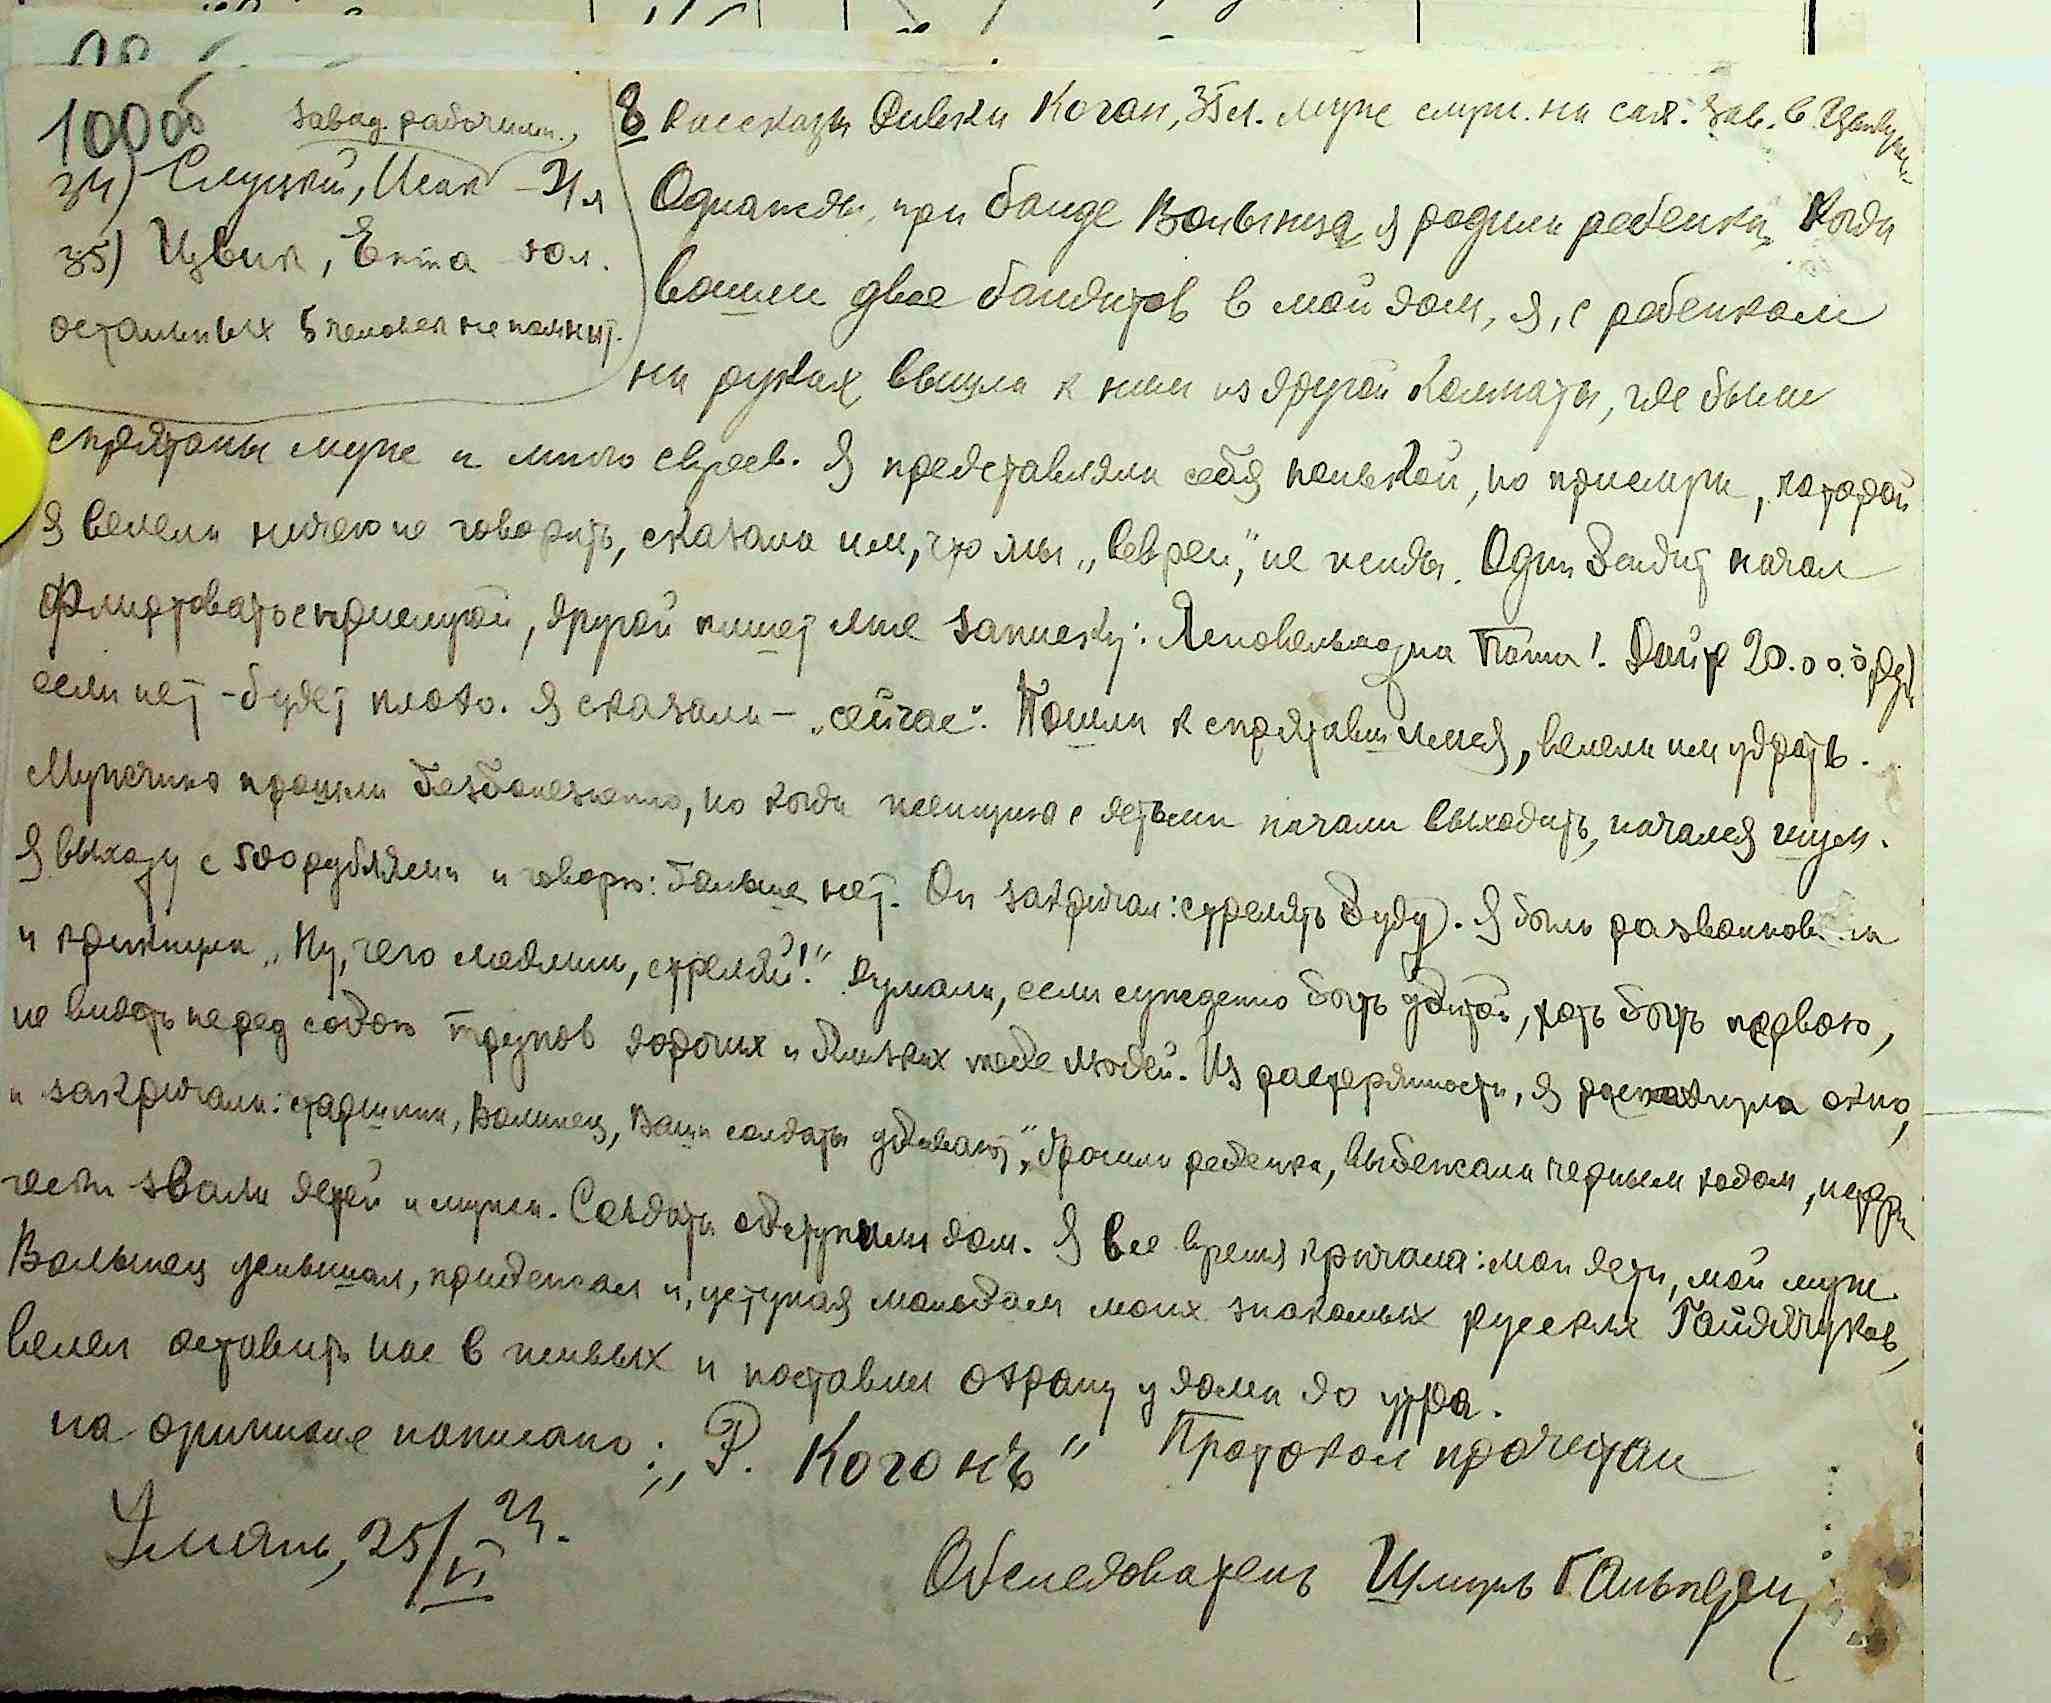 100 об
завед. рабочими.,
34) Слуцкий, Исак - 21 л
35) Цвик, Ента 40 л.
остальных 5 человек не помнит.
8 Рассказы Ривки Коган, 35 л. муж служ. на сах. зав. в
Однажды, при банде Волынца, я родила ребенка, когда
вошли двое бандитов в мой дом, я, с ребенком
на руках вышла к ним из другой комнаты, где были
спрятаны муж и много евреев. Я представляла себя полькой, но прислуга, которой
я велела ничего не говорить, сказала им, что мы „евреи", не жиды. Один бандит начал
флиртовать с прислугой, другой пишет мне записку: Ясновельможна Пани! Дайте 20.000 руб.
если нет - будет плохо. Я сказала - „сейчас". Пошла к спрятавшимся, велела им удрать.
Мужчины прошли безболезненно, но когда женщины с детьми начали выходить, начался шум.
Я выхожу с 500 рублями и говорю: больше нет. Он закричал: стрелять буду. Я была взволнована
и крикнула „Ну, чего медлиш, стреляй!" Думала, если суждено быть убитой, хоть быть первою,
не видеть перед собою трупов дорогих и близких тебе людей. Из растерянности, я распахнула окно,
и закричала: старшина, Волынец, Ваши солдаты убивают", бросила ребенка, выбежала черным ходом,
звала детей и мужа. Солдаты обступили дом. Я все время кричала: мои дети, мой муж.
Волынец услышал, прибежал и, уступая мольбам моих знакомых русских Гайдайчуков,
велел оставить нас в живых и поставил охрану у дома до утра.
на оригинале написано: „Р. Коганъ" Протокол прочитан
Умань, 25/VI 21.
Обследователь Шмуль Гальперин